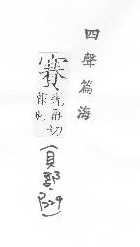 四聲篇海
賽
先再切
(貝部.
P229)